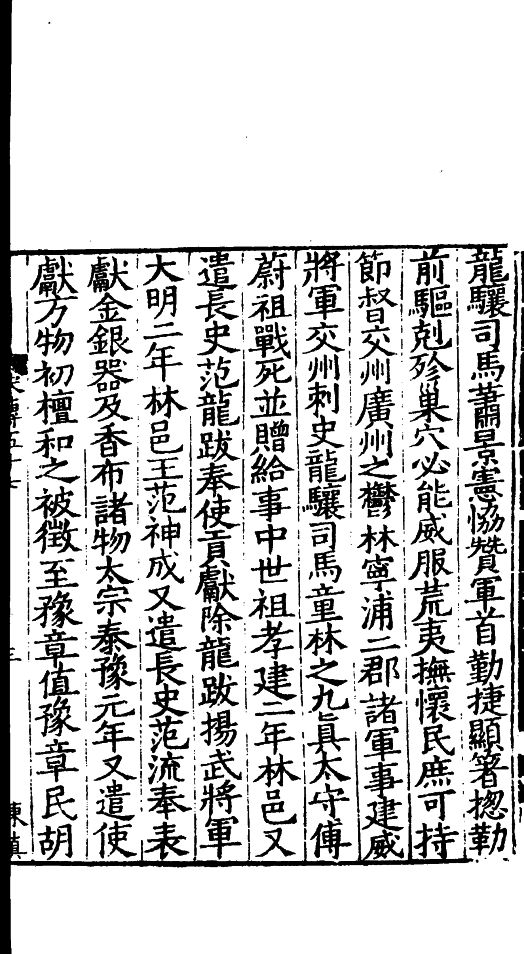 龍驤司馬蕭景憲恊贊軍首勤捷顯著揔勒
前驅剋殄巢穴必能威服荒夷撫懷民庶可持
節督交州廣州之鬱林寧浦二郡諸軍事建威
將軍交州刺史龍驤司馬童林之九眞太守傅
蔚祖戰死並贈給事中世祖孝建二年林邑又
遣長史范龍跋奉使貢獻除龍跋揚武將軍
大明二年林邑王范神成又遣長史范流奉表
獻金銀器及香布諸物太宗泰豫元年又遣使
獻方物初檀和之被徵至豫章值豫章民胡
三